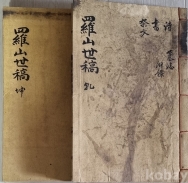 羅山世稿 坤
羅山世稿 乾
詩
書
祭文
墓碣
附錄
kobay